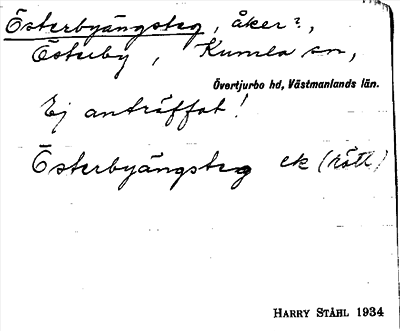 Österbyängsteg, åker?,
Österby, Kumla sn,
Övertjurbo hd, Västmanlands län.
Ej anträffat!
Österbyängsteg ek (rött)
HARRY STÅHL 1934